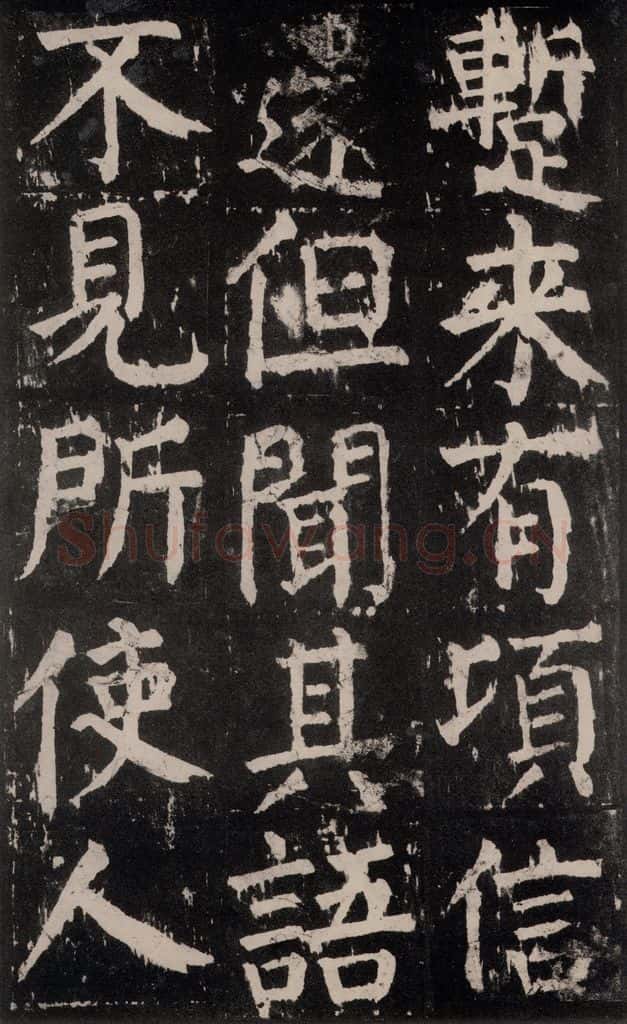 蹔来有頃信
還但聞其語
不見所使人
Shufawang.CN